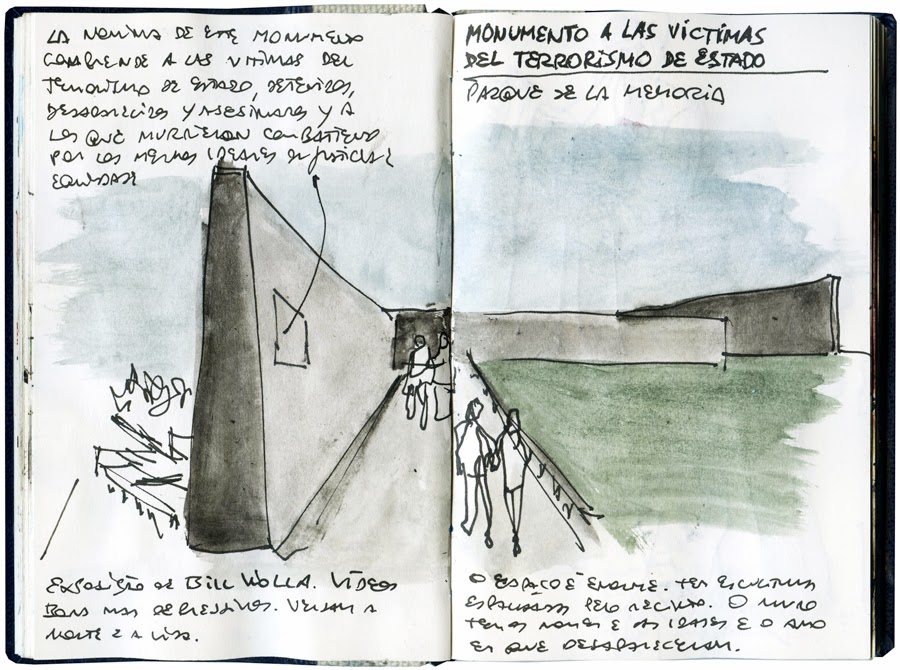 LA NOMINA DE ESTE MONUMENTO
COMPRENDE A LAS VICTIMAS DEL
TERRORISMO DE ESTADO, DETENIDOS,
DESAPARECIDOS Y ASESINADOS Y A
LOS QUE MURIERON COMBATIENDO
POR LOS MISMOS IDEALES DE JUSTICIA E
EQUIDAD
EXPOSIÇÃO DE BILL VIOLLA. VÍDEOS
BONS MAS DEPRESSIVOS. VERSAM A
MORTE E A VIDA.
MONUMENTO A LAS VÍCTIMAS
DEL TERRORISMO DE ESTADO
PARQUE DE LA MEMORIA
O ESPAÇO É ENORME. TEM ESCULTURAS
ESPALHADAS PELO RECINTO. O MURO
TEM OS NOMES E AS IDADES E O ANO
EM QUE DESAPARECERAM.